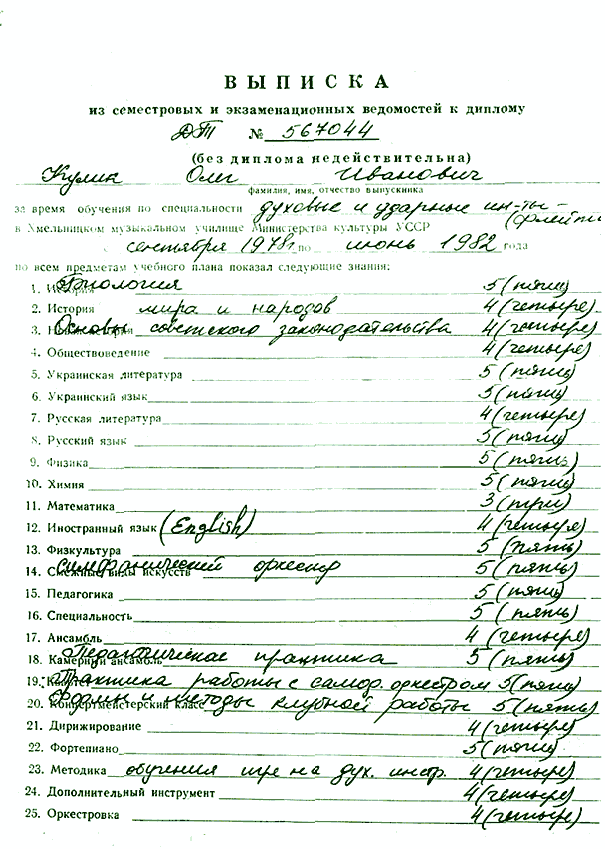 ВЫПИСКА
из семестровых и экзаменационных ведомостей к диплому
ДТ № 567044
(без диплома недействительна)
Кулик Олег Иванович
фамилия, имя, отчество выпускника
за время обучения по специальности духовые и ударные ин-ты -
в Хмельницком музыкальном училище Министерства культуры УССР (флейта
с сентября 1978г по июнь 1982 года
по всем предметам учебного плана показал следующие знания:
1. Биология 5 (пять)
2. История мира и народов 4 (четыре)
3. Основы советского законодательства 4 (четыре)
4. Обществоведение 4 (четыре)
5. Украинская литература 5 (пять)
6. Украинский язык 5 (пять)
7. Русская литература 4 (четыре)
8. Русский язык 5 (пять)
9. Физика 5 (пять)
10. Химия 5 (пять)
11. Математика 3 (три)
12. Иностранный язык (English) 4 (четыре)
13. Физкультура 5 (пять)
14. Смежные виды искусств симфонический оркестр 5 (пять)
15. Педагогика 5 (пять)
16. Специальность 5 (пять)
17. Ансамбль 4 (четыре)
18. Камерный ансамбль Педагогическая практика 5 (пять)
19. Практика работы с самод. оркестром 5 (пять)
20. Концертмейстерский класс Формы и методы клубной работы 5 (пять)
21. Дирижирование 4 (четыре)
22. Фортепиано 5 (пять)
23. Методика обучения игре на дух. инстр. 4 (четыре)
24. Дополнительный инструмент 4 (четыре)
25. Оркестровка 4 (четыре)